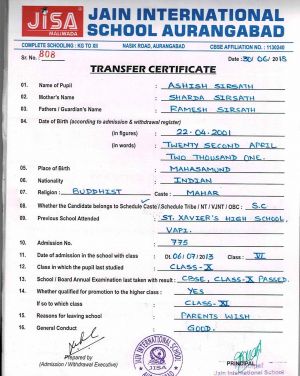 JISA
MALIWADA
JAIN INTERNATIONAL
SCHOOL AURANGABAD
COMPLETE SCHOOLING : KG TO XII NASIK ROAD, AURANGABAD CBSE AFFILIATION NO.: 1130240
Sr. No.: 808 Date : 30/06/2018
TRANSFER CERTIFICATE
01. Name of Pupil : ASHISH SIRSATH
02. Mother's Name : SHARDA SIRSATH
03. Fathers / Guardian's Name : RAMESH SIRSATH
04. Date of Birth (according to admission & withdrawal register)
(in figures) : 22.04.2001
(in words) : TWENTY SECOND APRIL
TWO THOUSAND ONE.
05. Place of Birth : MAHASAMUND
06. Nationality : INDIAN
07. Religion : BUDDHIST Caste : MAHAR
08. Whether the Candidate belongs to Schedule Caste / Schedule Tribe / NT / VJNT / OBC : S.C
09. Previous School Attended : ST. XAVIER'S HIGH SCHOOL,
VAPI.
10. Admission No. : 775
11. Date of admission in the school with class : Dt. 06/07/2013 Class : VI
12. Class in which the pupil last studied : CLASS-X
13. School / Board Annual Examination last taken with result : CBSE, CLASS-X PASSED.
14. Whether qualified for promotion to the higher class : YES
If so to which class : CLASS-XI
15. Reasons for leaving school : PARENTS WISH
16. General Conduct : GOOD.
Prepared by
(Admission / Withdrawal Executive)
JAIN INTERNATIONAL SCHOOL
JISA
PRINCIPAL
Jain International School